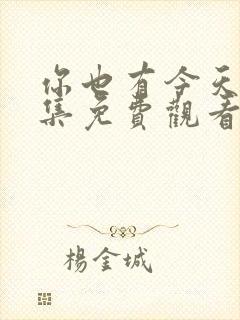 你也有今天
集免費觀看
楊金城